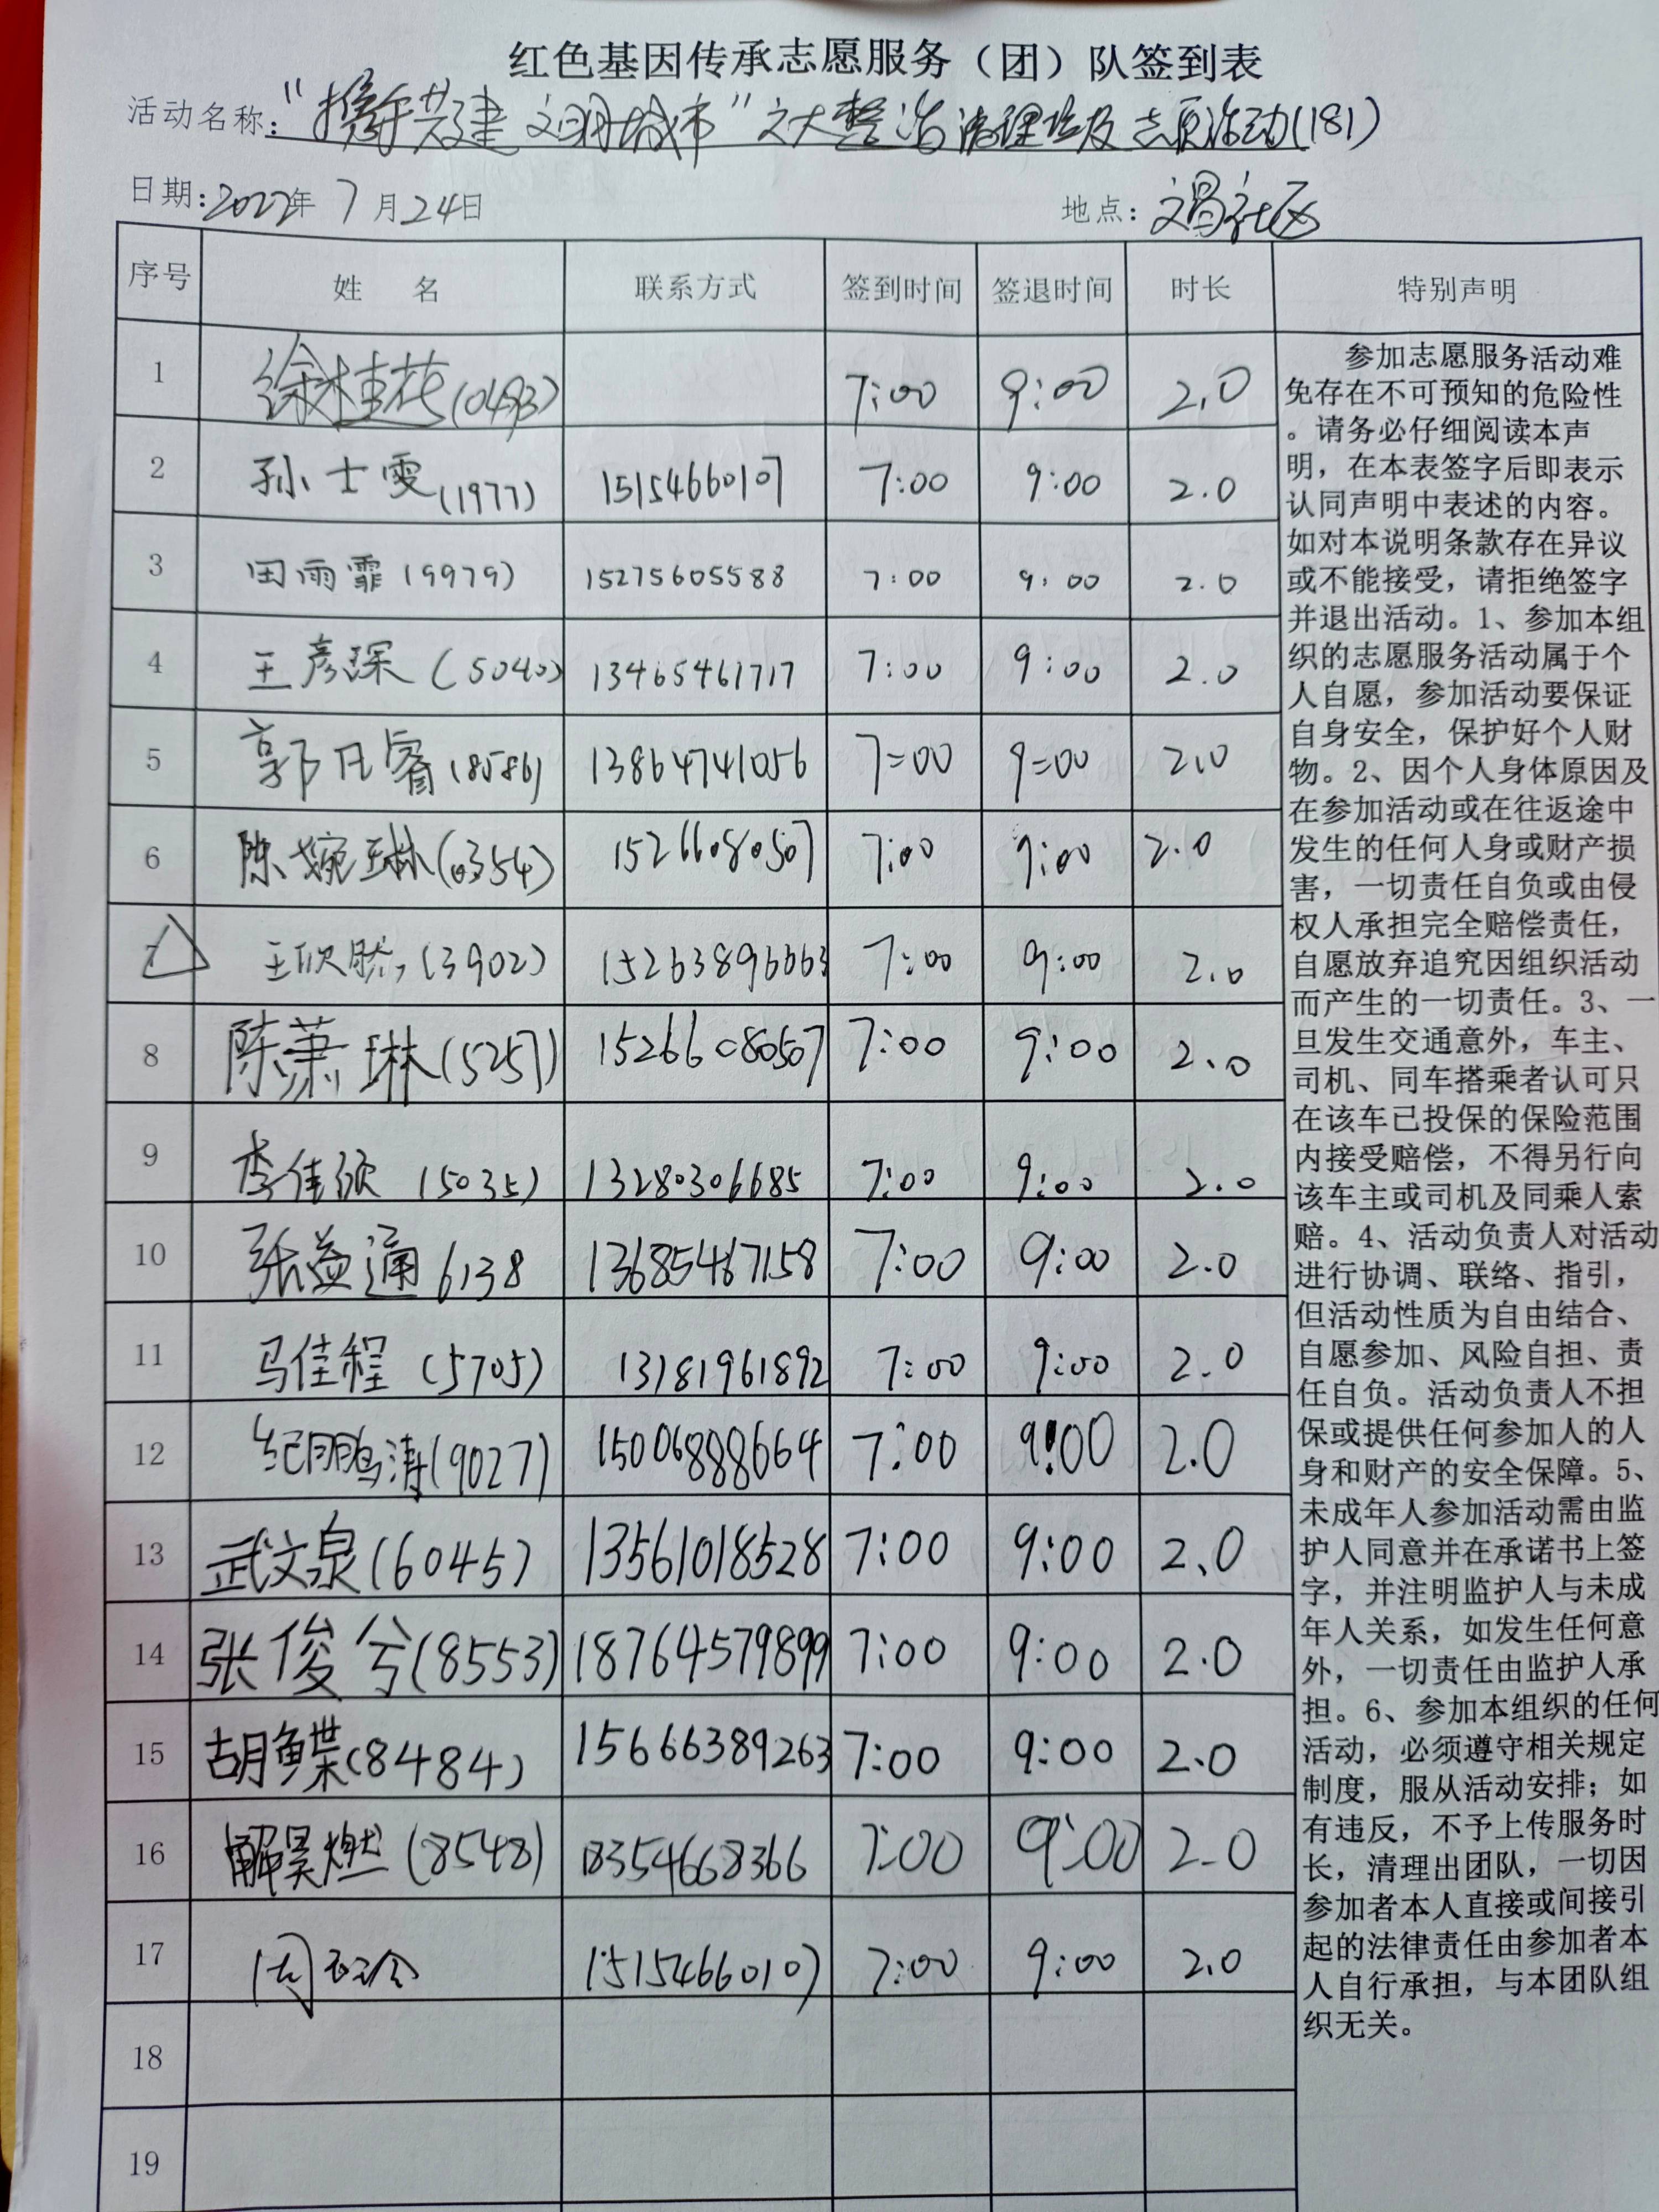 红色基因传承志愿服务（团）队签到表
活动名称："携手共建 文明城市"之大整治清理垃圾志愿活动(181)
日期:2022年 7月24日 地点:文昌社区
序号 姓 名 联系方式 签到时间 签退时间 时长 特别声明
1 徐桂花(0493) 7:00 9:00 2.0
2 孙士雯(1977) 15154660107 7:00 9:00 2.0
3 田雨霏(9979) 15275605588 7:00 9:00 2.0
4 王彦琛(5040) 13465461717 7:00 9:00 2.0
5 郭凡睿(8586) 13864741056 7:00 9:00 2.0
6 陈婉琳(0354) 15266080507 7:00 9:00 2.0
7 王欣 (3902) 15263896663 7:00 9:00 2.0
8 陈萧琳(5257) 15266080507 7:00 9:00 2.0
9 李佳欣(5035) 13280306685 7:00 9:00 2.0
10 张益通 6138 13685467158 7:00 9:00 2.0
11 马佳程(5705) 13181961892 7:00 9:00 2.0
12 纪鹏涛(9027) 15006888664 7:00 9:00 2.0
13 武文泉(6045) 13561018528 7:00 9:00 2.0
14 张俊兮(8553) 18764579899 7:00 9:00 2.0
15 胡鲽(8484) 15666389263 7:00 9:00 2.0
16 解昊燃(8548) 18354668366 7:00 9:00 2.0
17 周 15154660107 7:00 9:00 2.0
18
19
参加志愿服务活动难
免存在不可预知的危险性
。请务必仔细阅读本声
明，在本表签字后即表示
认同声明中表述的内容。
如对本说明条款存在异议
或不能接受，请拒绝签字
并退出活动。1、参加本组
织的志愿服务活动属于个
人自愿，参加活动要保证
自身安全，保护好个人财
物。2、因个人身体原因及
在参加活动或在往返途中
发生的任何人身或财产损
害，一切责任自负或由侵
权人承担完全赔偿责任，
自愿放弃追究因组织活动
而产生的一切责任。3、一
旦发生交通意外，车主、
司机、同车搭乘者认可只
在该车已投保的保险范围
内接受赔偿，不得另行向
该车主或司机及同乘人索
赔。4、活动负责人对活动
进行协调、联络、指引，
但活动性质为自由结合、
自愿参加、风险自担、责
任自负。活动负责人不担
保或提供任何参加人的人
身和财产的安全保障。5、
未成年人参加活动需由监
护人同意并在承诺书上签
字，并注明监护人与未成
年人关系，如发生任何意
外，一切责任由监护人承
担。6、参加本组织的任何
活动，必须遵守相关规定
制度，服从活动安排；如
有违反，不予上传服务时
长，清理出团队，一切因
参加者本人直接或间接引
起的法律责任由参加者本
人自行承担，与本团队组
织无关。